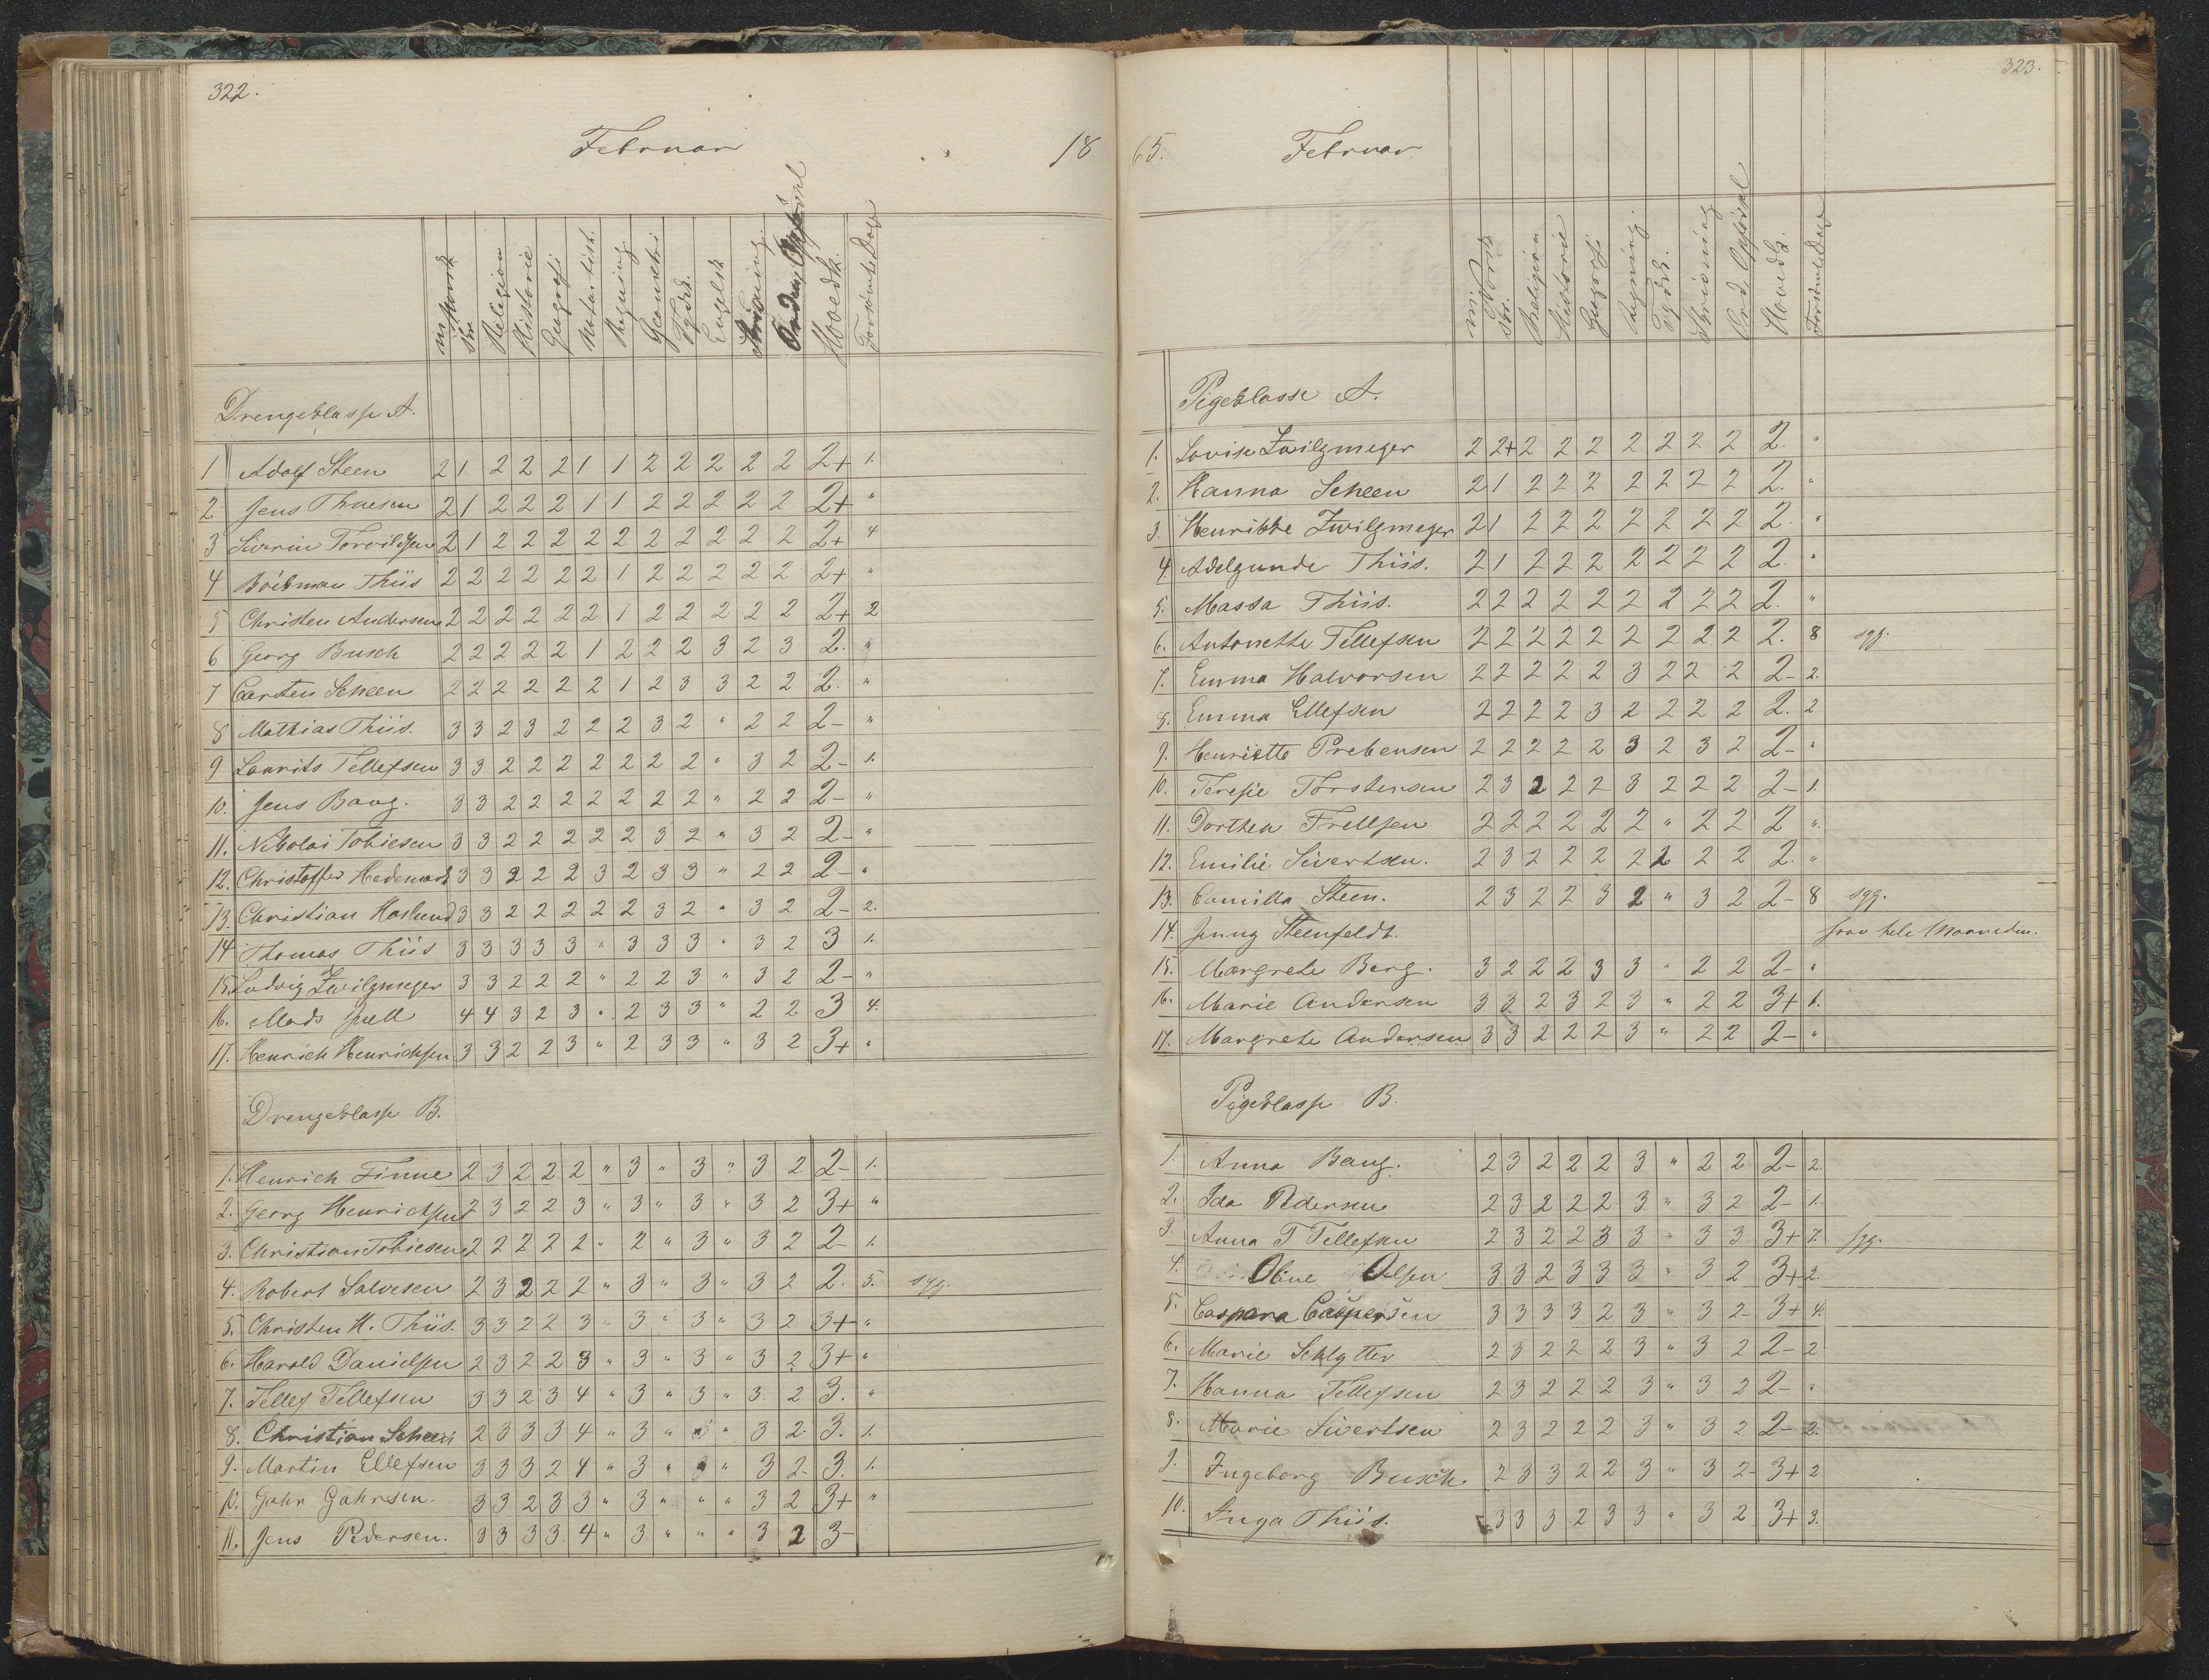 322.
Februar
18
mi Norsk skr. Religion Historie Geografi Naturhist. Regning Geometri Tydsk. Engelsk Skrivning. Orden Opførsel Hovedk. Forsømte Dage
Drengeklasse A.
1 Adolf Steen 2 1 2 2 2 1 1 2 2 2 2 2 2+ 1.
2 Jens Thuesen 2 1 2 2 2 1 1 2 2 2 2 2 2+ "
3 Severin Torvildsen 2 1 2 2 2 2 2 2 2 2 2 2 2+ 4
4 Thiis 2 2 2 2 2 2 1 2 2 2 2 2 2+ "
5 Christen Andersen 2 2 2 2 2 2 1 2 2 2 2 2 2+ 2
6 Georg Busch 2 2 2 2 2 1 2 2 2 3 2 3 2. "
7 Carsten Scheen 2 2 2 2 2 2 1 2 3 3 2 2 2. "
8 Mathias Thiis. 3 3 2 3 2 2 2 3 2 " 2 2 2- "
9 Laurits Tellefsen 3 3 2 2 2 2 2 2 2 " 3 2 2- 1.
10. Jens Bang. 3 3 2 2 2 2 2 2 2 " 2 2 2- "
11. Nikolai Tobiesen 3 3 2 2 2 2 2 3 2 " 3 2 2- "
12. Christoffer Hedemark 3 3 2 2 2 3 2 3 3 " 2 2 2- "
13. Christian Haslund 3 3 2 2 2 2 2 3 2 " 3 2 2- 2.
14 Thomas Thiis 3 3 3 3 3 " 3 3 3 " 3 2 3 1.
15. Ludvig Zwilgmeyer 3 3 2 2 2 " 2 2 3 " 3 2 2- "
16. Mads Juell 4 4 3 2 3 " 2 3 3 " 2 2 3 4.
17. Henrich Henrichsen 3 3 2 2 3 " 2 3 3 " 3 2 3+ "
Drengeklasse B.
1. Henrich Finne 2 3 2 2 2 " 3 " 3 " 3 2 2- 1.
2. Georg Henrichsen 2 3 2 2 3 " 3 " 3 " 3 2 3+ "
3. Christian Tobiesen 2 2 2 2 2 " 2 " 3 " 3 2 2- 1.
4. Robert Salvesen 2 3 2 2 2 " 3 " 3 " 3 2 2. 5. syg.
5. Christen H. Thiis. 3 3 2 2 3 " 3 " 3 " 3 2 3+ "
6. Harald Danielsen 2 3 2 2 3 " 3 " 3 " 3 2 3+ "
7. Tellef Tellefsen 3 3 2 3 4 " 3 " 3 " 3 2 3. "
8. Christian Scheen 2 3 3 3 4 " 3 " " 3 2 3. 1.
9. Martin Ellefsen 3 3 3 2 4 " 3 " " 3 2 3. 1.
10. Gahr Gahrsen. 3 3 2 3 3 " 3 " " " 3 2 3+ "
11. Jens Pedersen. 3 3 3 3 4 " 3 " " " 3 2 3-
323.
65.
Februar
mi Norsk skr. Religion Historie Geografi Regning Tydsk. Skrivning Ord. Opførsel Hovedk. Forsømte Dage
Pigeklasse A.
1. Lovise Zwilgmeyer 2 2+ 2 2 2 2 2 2 2 2. "
2. Hanna Scheen 2 1 2 2 2 2 2 2 2 2. "
3. Henrikke Zwilgmeyer 2 1 2 2 2 2 2 2 2 2. "
4. Adelgunde Thiis. 2 1 2 2 2 2 2 2 2 2. "
5. Massa Thiis. 2 2 2 2 2 2 2 2 2 2. "
6. Antonette Tellefsen 2 2 2 2 2 2 2 2 2 2. 8 syg.
7. Emma Halvorsen 2 2 2 2 2 3 2 2 2 2- 2.
8. Emma Ellefsen 2 2 2 2 3 2 2 2 2 2. 2
9. Henriette Prebensen 2 2 2 2 2 3 2 3 2 2- "
10. Teresie Torstensen 2 3 2 2 2 3 2 2 2 2- 1.
11. Dorthea Frellsen 2 2 2 2 2 2 " 2 2 2 "
12. Emilie Sivertsen. 2 3 2 2 2 2 2 2 2 2. "
13. Camilla Steen. 2 3 2 2 3 2 " 3 2 2- 8 syg.
14. Jenny Steenfeldt. frav hele Maaneden.
15. Margrete Berg. 3 2 2 2 3 3 " 2 2 2- "
16. Marie Andersen 3 3 2 3 2 3 " 2 2 3+ 1.
17. Margrete Andersen 3 3 2 2 2 3 " 2 2 2- "
Pigeklasse B.
1. Anna Bang. 2 3 2 2 2 3 " 2 2 2- 2.
2. Ida Pedersen 2 3 2 2 2 3 " 3 2 2- 1.
3. Anna T Tellefsen 2 3 2 2 3 3 " 3 3 3+ 7. syg.
4. Oline Olsen 3 3 2 3 3 3 " 3 2 3+ 2.
5. Caspara Caspersen 3 3 3 3 2 3 " 3 2 3+ 4.
6. Marie Schlytter 2 3 2 2 2 3 " 3 2 2- 2
7. Hanna Tellefsen 2 3 2 2 2 3 " 3 2 2- "
8. Marie Sivertsen 2 3 2 2 2 3 " 3 2 2- 2.
9. Ingeborg Busch. 2 3 3 2 2 3 " 3 2 3+ 2
10. Inga Thiis. 3 3 3 2 3 3 " 3 2 3+ 3.